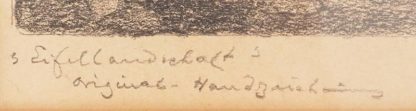 "Eifellandschaft"
Original-Handzeichnung